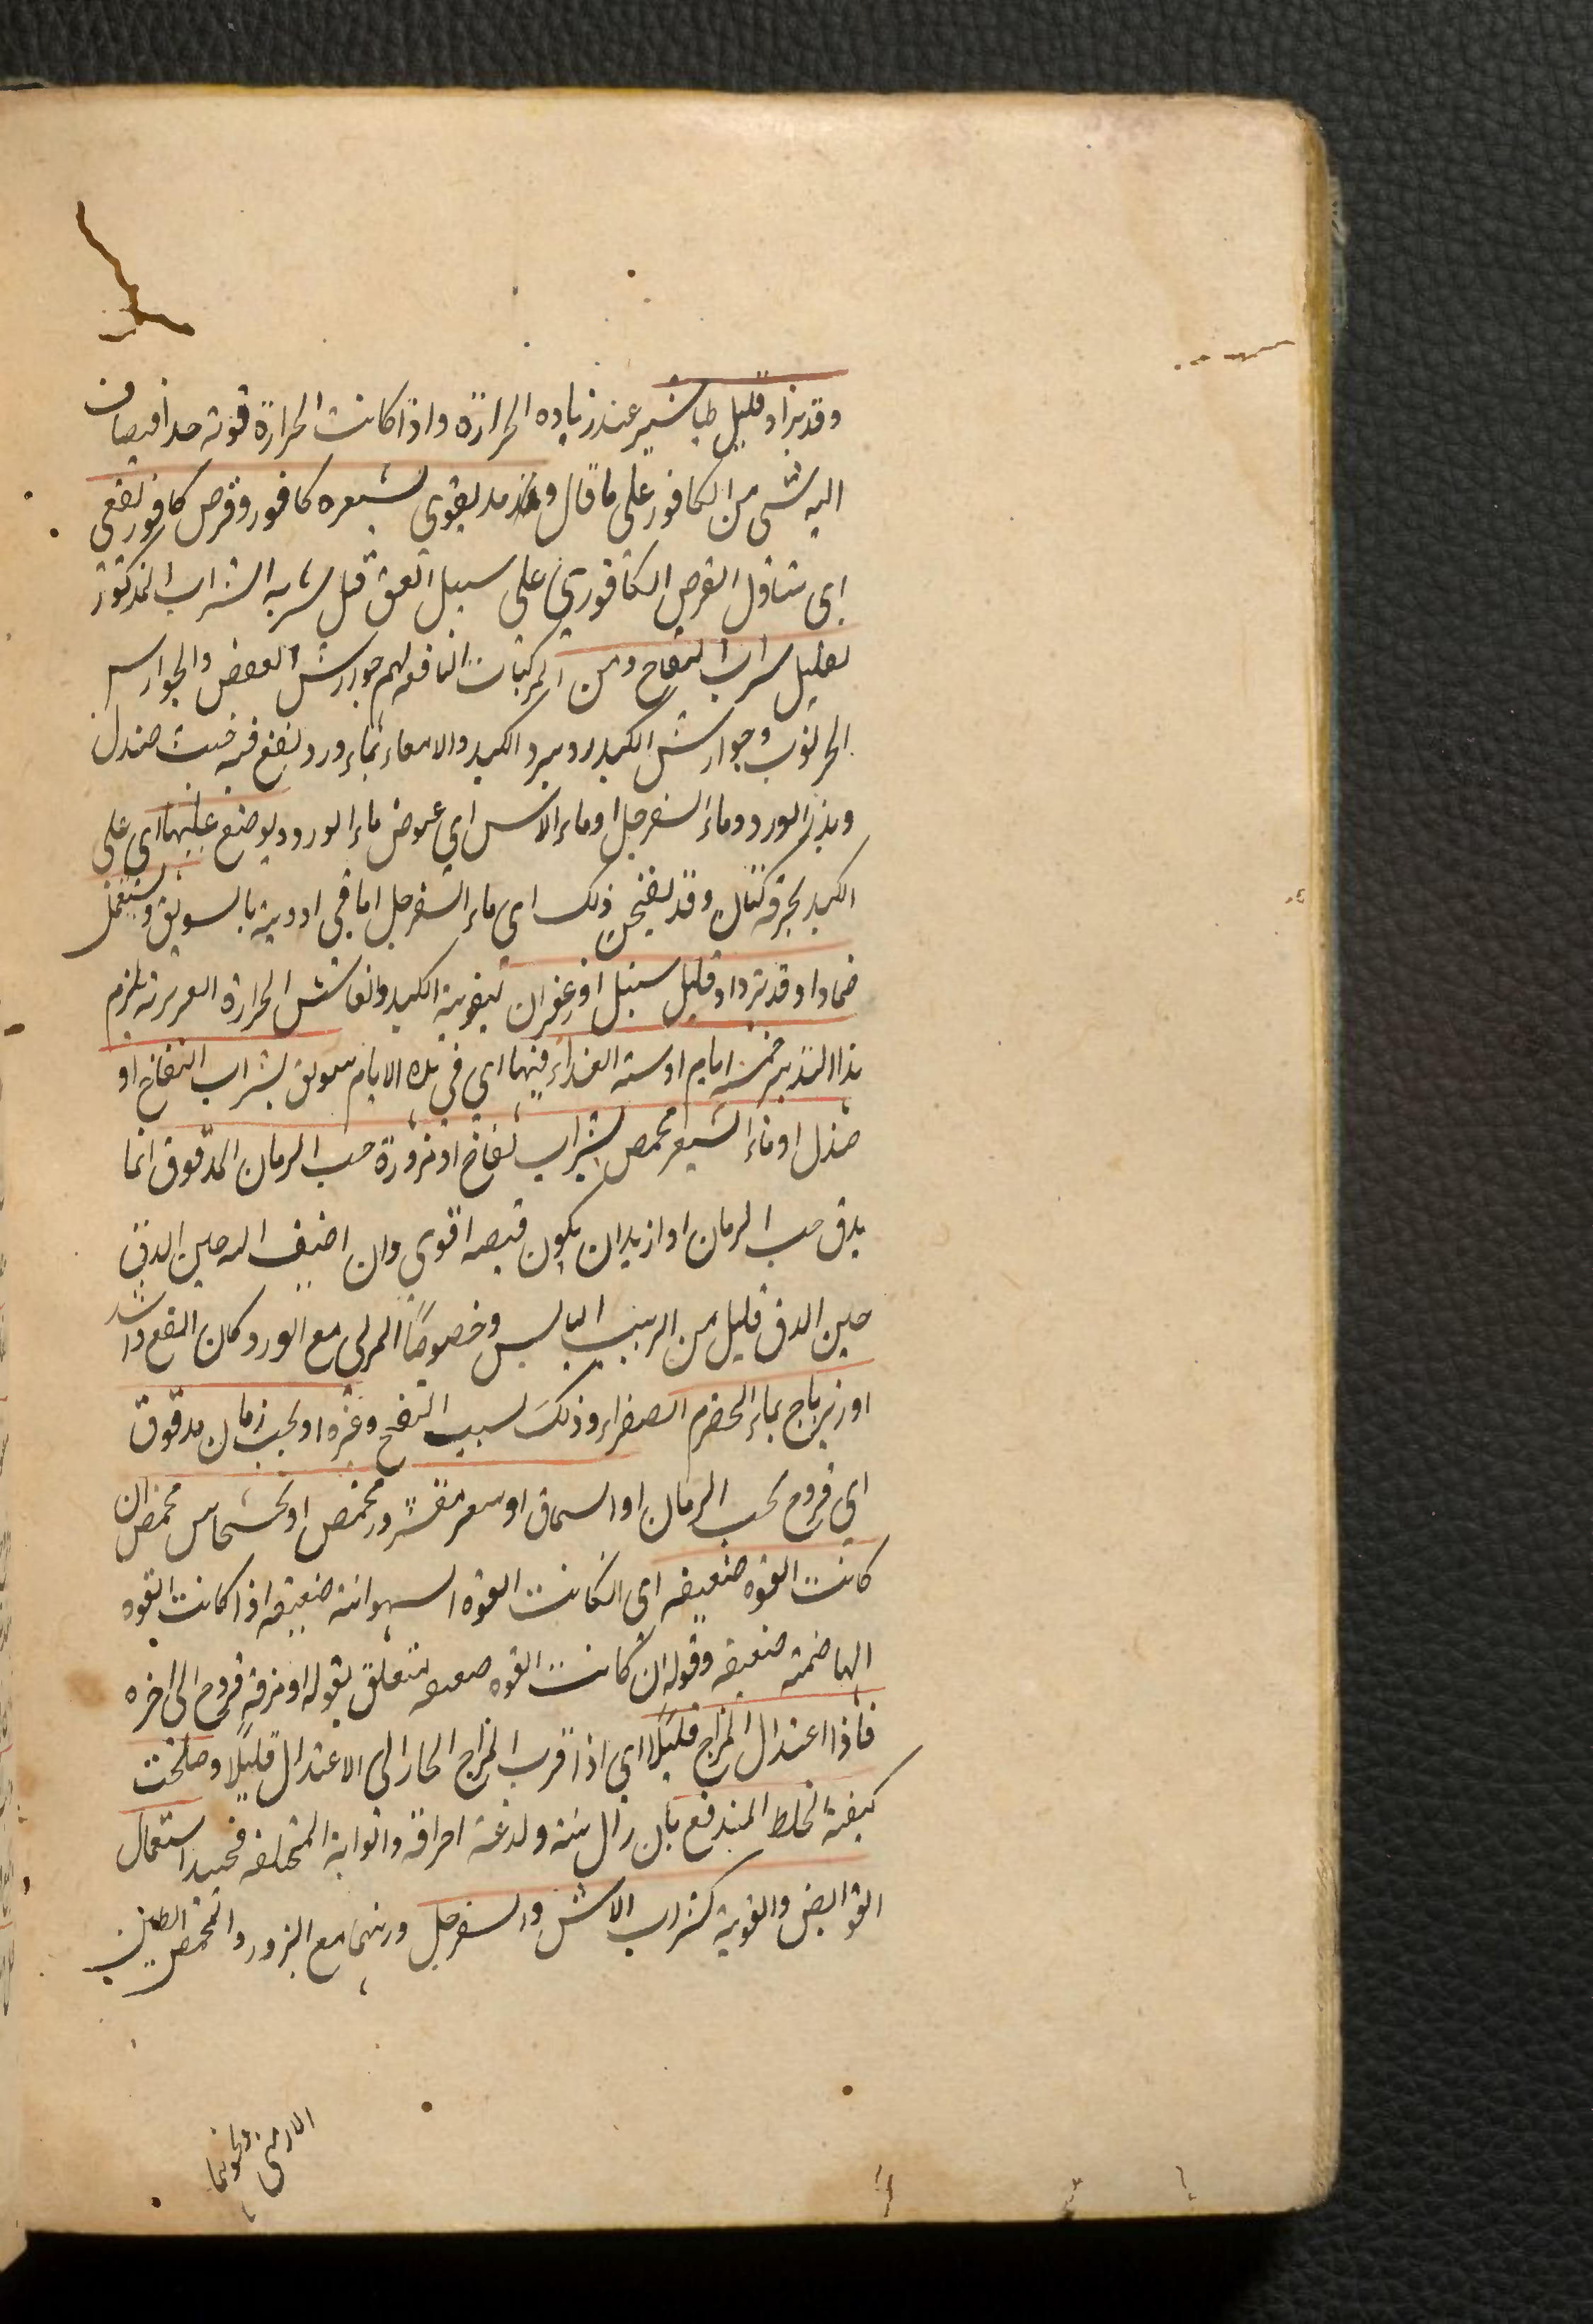 وقد يزاد قليل طباشير عند زياده الحرارة واذا كانت الحرارة قوية جدا فيضاف
اليه شئ من الكافور على ما قال وقد يقوى بشعيره كافور وقرص كافور لعقى
اى يتناول القرص الكافورى على سبيل اللعق قبل شربه الشراب المذكور
بقليل شراب التفاح ومن المركبات النافعه لهم جوارش العفص والجوارس
الخرنوب وجوارش الكيد ويبرد الكبد والامعاء بماء ورد ينقع فيه خبث صندل
وبزر الورد وماء السفرجل او ماء الاس اي عوض ماء الورد ويوضع عليهما اي على
الكبد بخرقه كتان وقد يفتخن ذلك اي ماء السفرجل اما في ادوية بالسويق ويستعمل
ضمادا وقد يزداد قليل سنبل او زعفران لتقوية الكبد وانعاش الحرارة الغريزية يلزم
هذا التدبير خمسة ايام او سته الغداء فيها اي في هذه الايام سويق بشراب التفاح او
صندل او ماء الشعير محمص بشراب تفاح او مزورة حب الرمان المدقوق انما
يدق حب الرمان اذا اريد ان يكون قبضه اقوي وان اضيف اليه حين الدق
حين الدق قليل من الزبيب اليابس وخصوصًا المربى مع الورد كان انفع واشد
او زيرباج بماء الحصرم الصفراء وذلك بسبب النفخ وغيره او بحب رمان مدقوق
اي فروج بحب الرمان او السماق او شعير مقشور محمص او خشخاش محمص ان
كانت القوه ضعيفه اى ان كانت القوه الشهوانية ضعيفه اذا كانت القوه
الهاضمة ضعيفه وقوله ان كانت القوه ضعيفه يتعلق بقوله او مرقه فروج الى اخره
فاذا اعتدال المزاج قليلا اي اذا قرب المزاج الحار الى الاعتدال قليلًا وصلحت
كيفية الخلط المندفع بان زال نتنه ولذعه احراقه والوانه المختلفه فحينئذ استعمال
القوابض والقوية كشراب الاس والسفرجل وربهما مع البزور والمحمص الطين
الارمنى ونحوهما